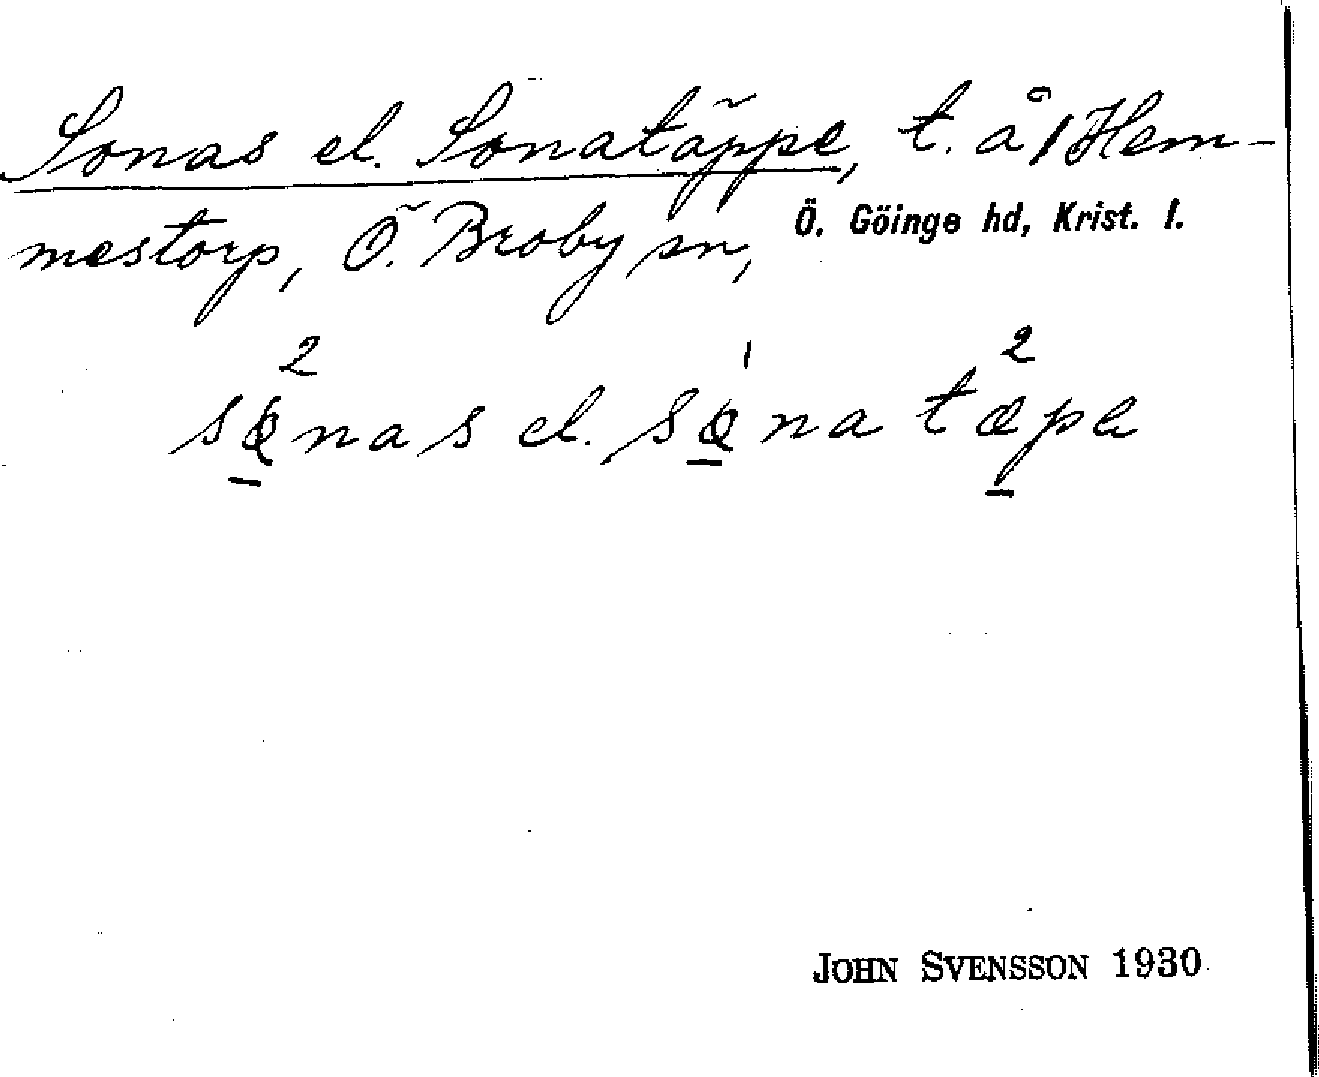 Sonas el. Sonatäppe, t. å / Hem-
mestorp, Ö. Broby sn, Ö. Göinge hd, Krist. l.
2 1 2
sǫnas el. sǫna tæpa
JOHN SVENSSON 1930